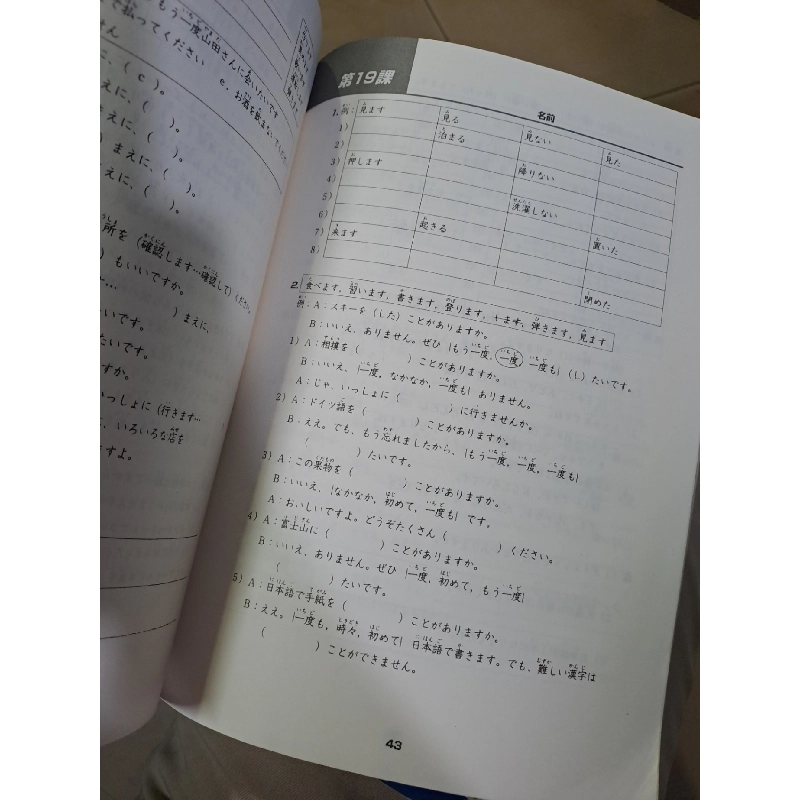 もう一度山田さんに会いたいです
で払ってください e．お酒を飲まないでくだ
に，（ c ）。
えに，（ ）。
えに，（ ）。
まえに，（ ）。
えに，（ ）。
所を（確認します…確認して）ください。
）もいいですか。
）まえに，
いです。
たいです。
いっしょに（行きます…
，いろいろな店を
すよ。
第19課
名前
1．例：見ます 見る 見ない 見た
1） 泊まる
2） 降りない
3） 押します
4） 洗濯しない
5） 置いた
6） 起きる
7） 来ます
8） 閉めた
2． 食べます，習います，書きます，登ります，弾きます，見ます
例：A：スキーを（した）ことがありますか。
B：いいえ，ありません。ぜひ｛もう一度，一度，一度も｝（し）たいです。
1）A：相撲を（ ）ことがありますか。
B：いいえ，｛一度，なかなか，一度も｝ありません。
A：じゃ，いっしょに（ ）に行きませんか。
2）A：ドイツ語を（ ）ことがありますか。
B：ええ。でも，もう忘れましたから，｛もう一度，一度，一度も｝
（ ）たいです。
3）A：この果物を（ ）ことがありますか。
B：いいえ，｛なかなか，初めて，一度も｝です。
A：おいしいですよ。どうぞたくさん（ ）ください。
4）A：富士山に（ ）ことがありますか。
B：いいえ，ありません。ぜひ｛一度，初めて，もう一度｝
（ ）たいです。
5）A：日本語で手紙を（ ）ことがありますか。
B：ええ。｛一度も，時々，初めて｝日本語で書きます。でも，難しい漢字は
（ ）ことができません。
43